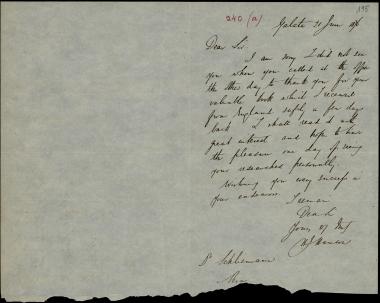 195
240 (a)
Galata 30 June 1876
Dear Sir.
I am sorry I did not see
you when you called at the office
the other day to thank you for your
valuable book which I received
from England safely a few days
back. I shall read it with
great interest and hope to have
the pleasure one day of seeing
your researches personally.
Wishing you every success in
your endeavors
I remain
Dear Sir
Yours
Dr Schliemann